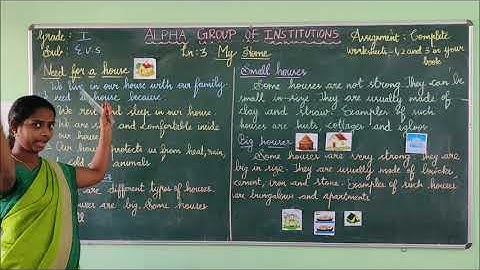 Grade: I
Sub: E.V.S
ALPHA GROUP OF INSTITUTIONS
Ln: 3 My Home
Assignment: Complete
Worksheets-1,2 and 3 in your
book
Need for a house
We live in our house with our family.
need house because
We rest and sleep in our house
are and comfortable inside
our house
Our house protects us from heat, rain,
cold animals
are different types of houses.
are big, some houses
Small houses
Some houses are not strong. They can be
small in size. They are usually made of
clay and straw. Examples of such
houses are huts, cottages and igloos
Big houses
Some houses are very strong. They are
big in size. They are usually made of bricks,
cement, iron and stone. Examples of such houses
are bungalow and apartments